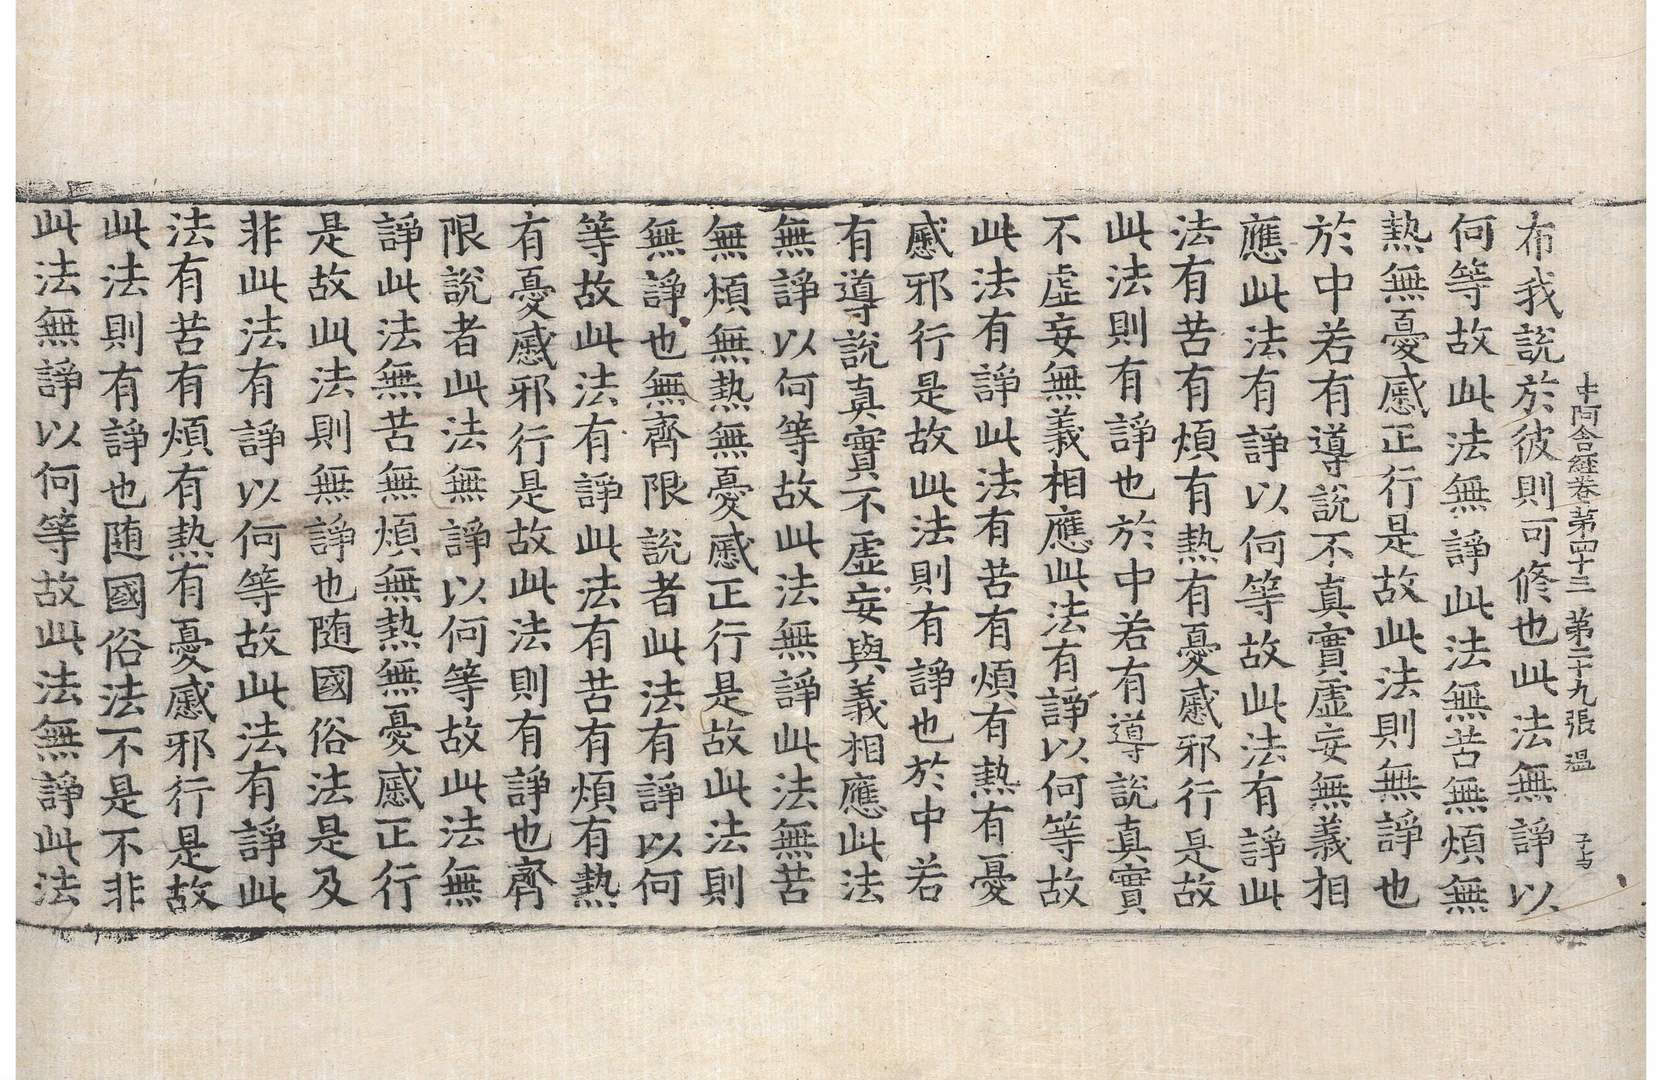 中阿含經卷第四十三 第二十九張 温
布我說於彼則可修也此法無諍以
何等故此法無諍此法無苦無煩無
熱無憂慼正行是故此法則無諍也
於中若有導說不真實虛妄無義相
應此法有諍以何等故此法有諍此
法有苦有煩有熱有憂慼邪行是故
此法則有諍也於中若有導說真實
不虛妄無義相應此法有諍以何等故
此法有諍此法有苦有煩有熱有憂
慼邪行是故此法則有諍也於中若
有導說真實不虛妄與義相應此法
無諍以何等故此法無諍此法無苦
無煩無熱無憂慼正行是故此法則
無諍也無齊限說者此法有諍以何
等故此法有諍此法有苦有煩有熱
有憂慼邪行是故此法則有諍也齊
限說者此法無諍以何等故此法無
諍此法無苦無煩無熱無憂慼正行
是故此法則無諍也随國俗法是及
非此法有諍以何等故此法有諍此
法有苦有煩有熱有憂慼邪行是故
此法則有諍也随國俗法不是不非
此法無諍以何等故此法無諍此法